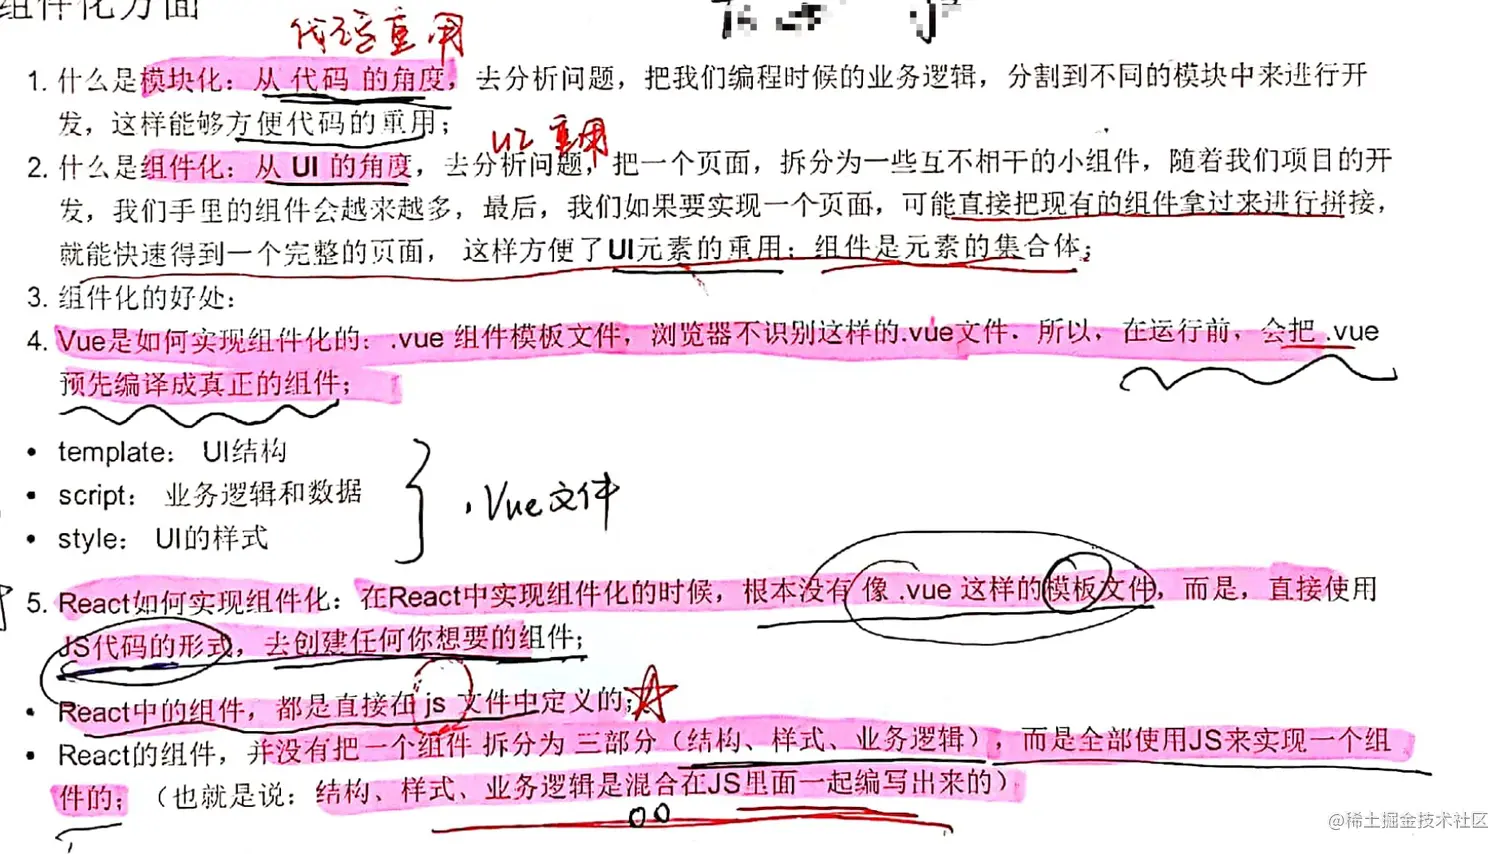 组件化方面
代码重用
1. 什么是模块化：从 代码 的角度，去分析问题，把我们编程时候的业务逻辑，分割到不同的模块中来进行开
发，这样能够方便代码的重用；
UI 重用
2. 什么是组件化：从 UI 的角度，去分析问题，把一个页面，拆分为一些互不相干的小组件，随着我们项目的开
发，我们手里的组件会越来越多，最后，我们如果要实现一个页面，可能直接把现有的组件拿过来进行拼接，
就能快速得到一个完整的页面， 这样方便了UI元素的重用；组件是元素的集合体；
3. 组件化的好处：
4. Vue是如何实现组件化的：.vue 组件模板文件，浏览器不识别这样的.vue文件．所以，在运行前，会把 .vue
预先编译成真正的组件；
• template： UI结构
• script： 业务逻辑和数据
.Vue文件
• style： UI的样式
5. React如何实现组件化：在React中实现组件化的时候，根本没有 像 .vue 这样的模板文件，而是，直接使用
JS代码的形式，去创建任何你想要的组件；
• React中的组件，都是直接在 js 文件中定义的；
• React的组件，并没有把一个组件 拆分为 三部分（结构、样式、业务逻辑），而是全部使用JS来实现一个组
件的；（也就是说：结构、样式、业务逻辑是混合在JS里面一起编写出来的）
@稀土掘金技术社区